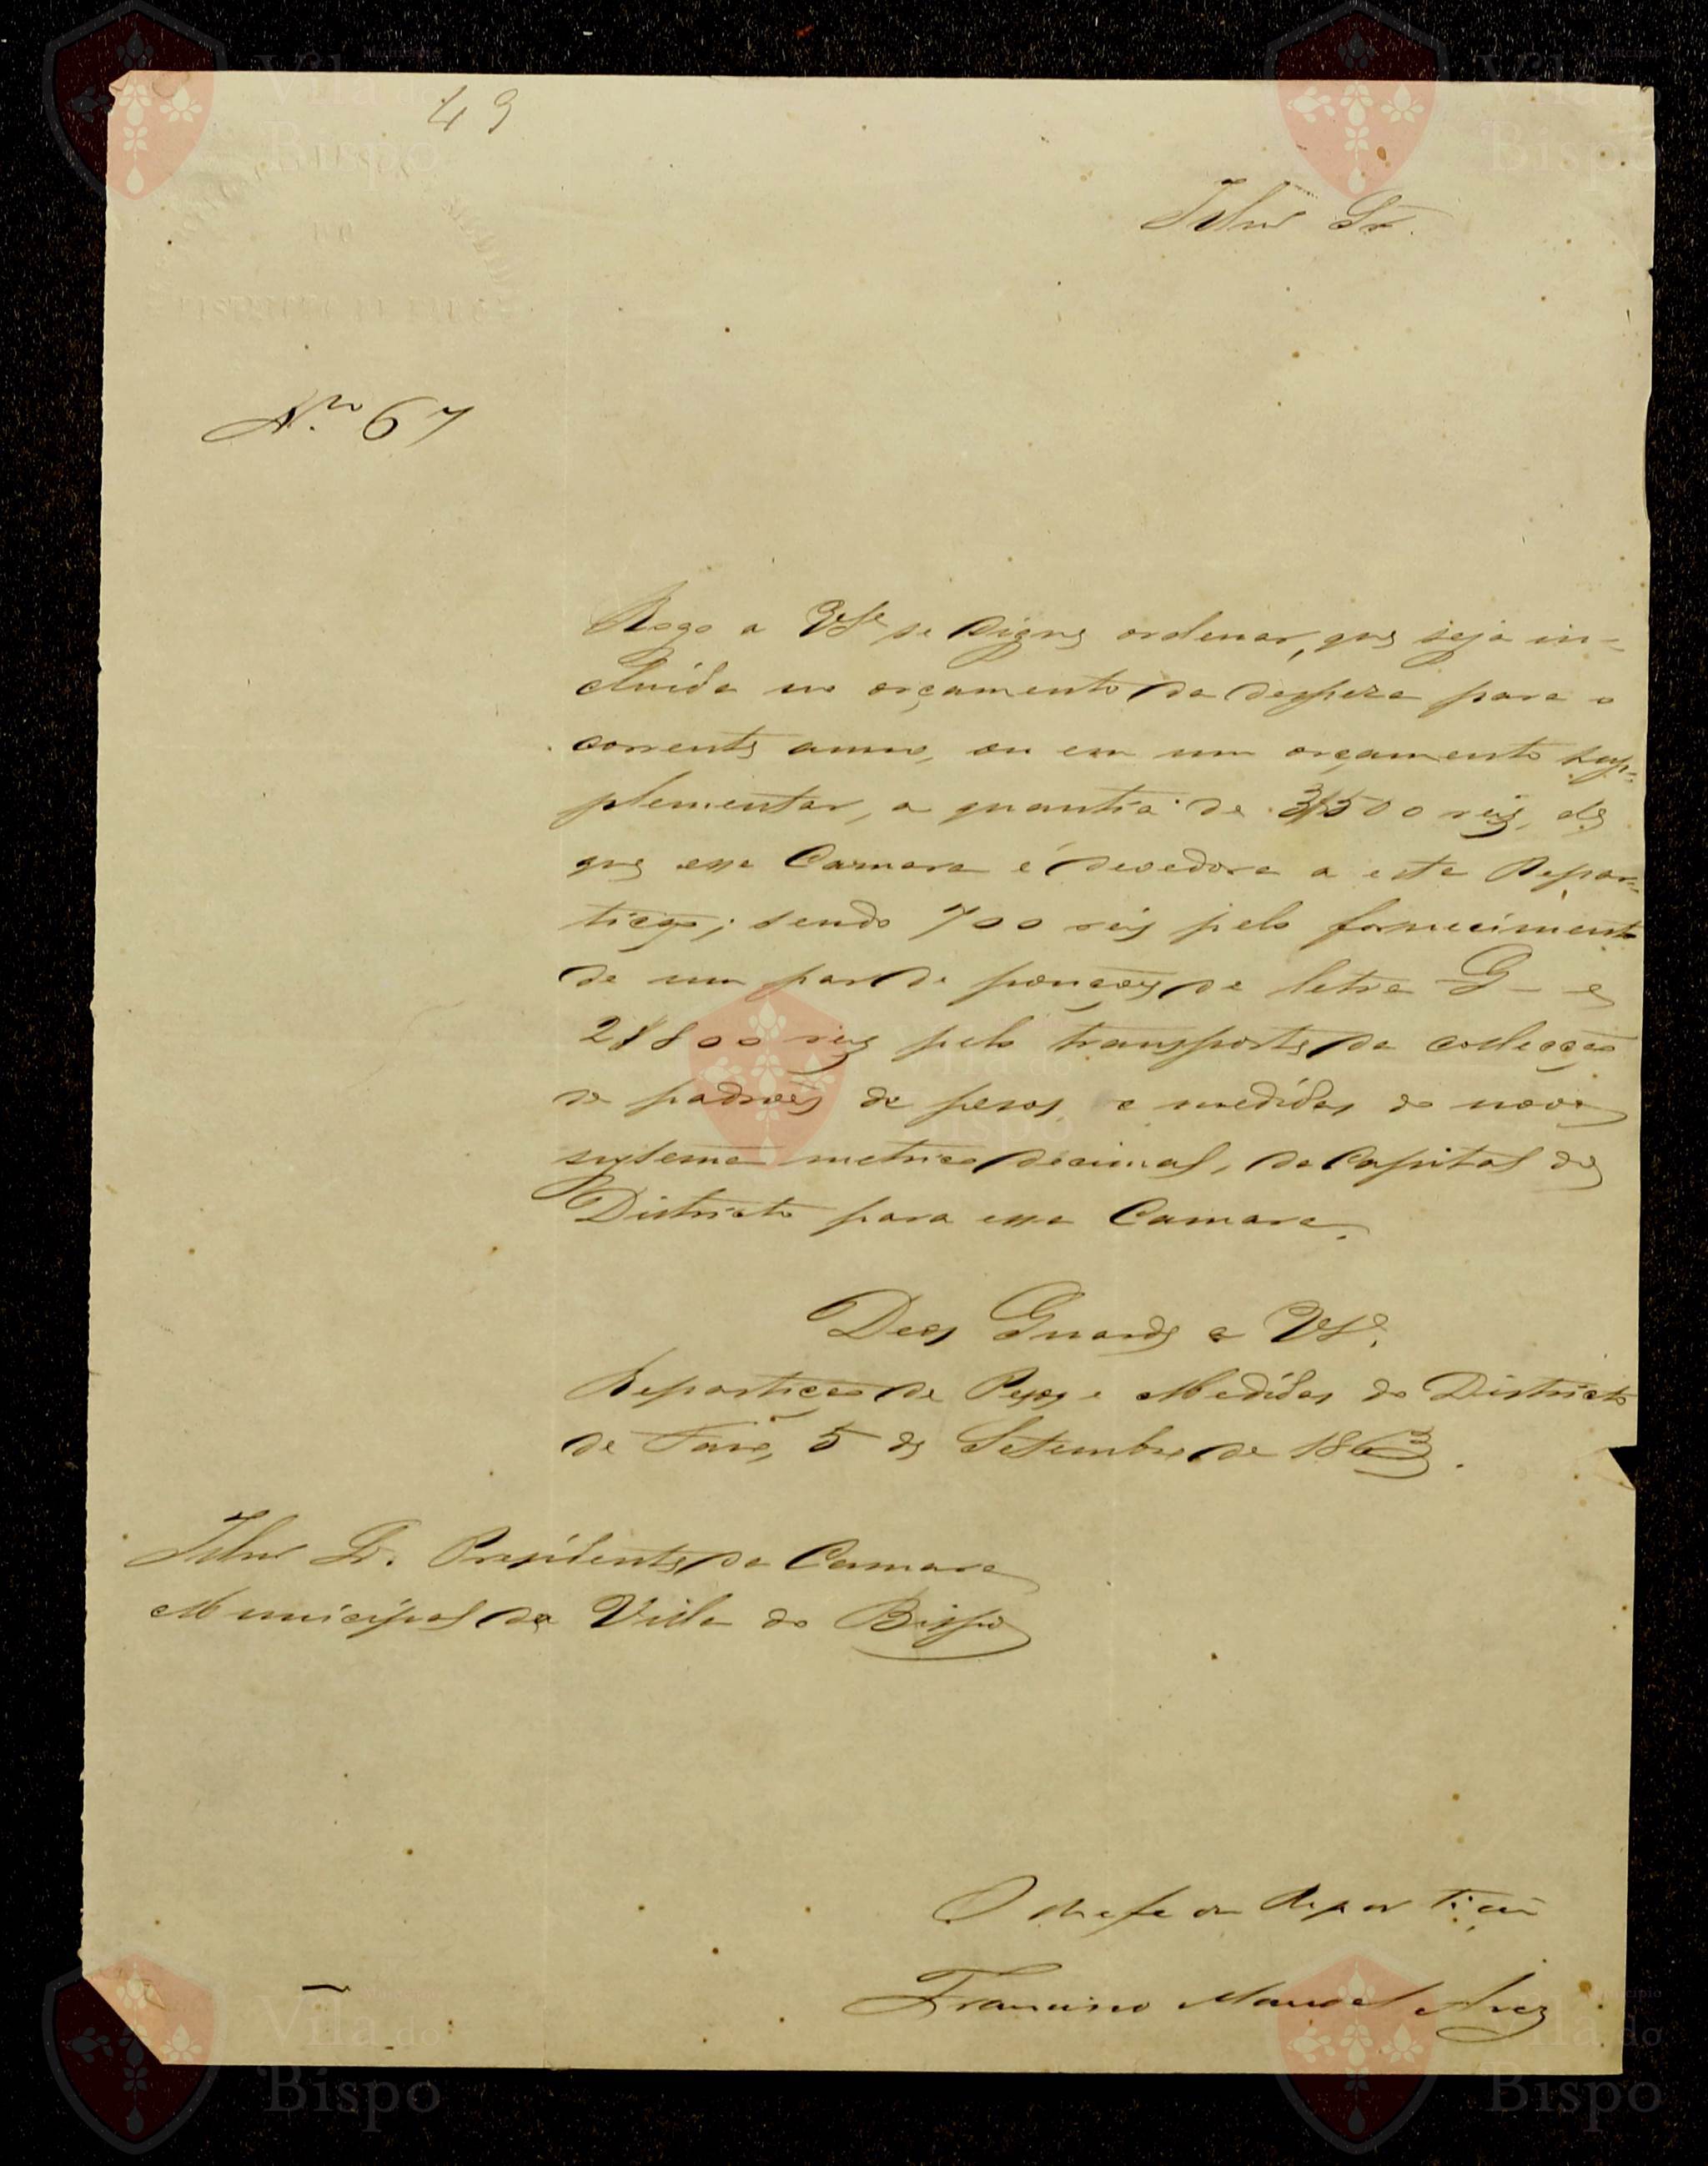 49
Illmo Sr.
DO
DISTRICTO DE FARO
No. 67
Rogo a VSa se digne ordenar, que seja in-
cluida no orçamento da despeza para o
corrente anno, ou em um orçamento sup-
plementar, a quantia de 3$500 reis, de
que essa Camara é devedora a esta Repar-
tição; sendo 700 reis pelo fornecimento
de um par de ponções de letra G - e
2$800 reis pelo transporte da collecção
de padrões de pesos e medidas do novo
systema metrico decimal, da Capital do
Districto para essa Camara.
Deos Guarde a VSa.
Repartição de Pesos e Medidas do Districto
de Faro, 5 de Setembro de 1863.
Illmo Sr. Presidente da Camara
Municipal da Villa do Bispo
O chefe da Repartição
Francisco Manoel
Vila do Bispo
Vila do Bispo
Vila do Bispo
Vila do Bispo
Vila do Bispo